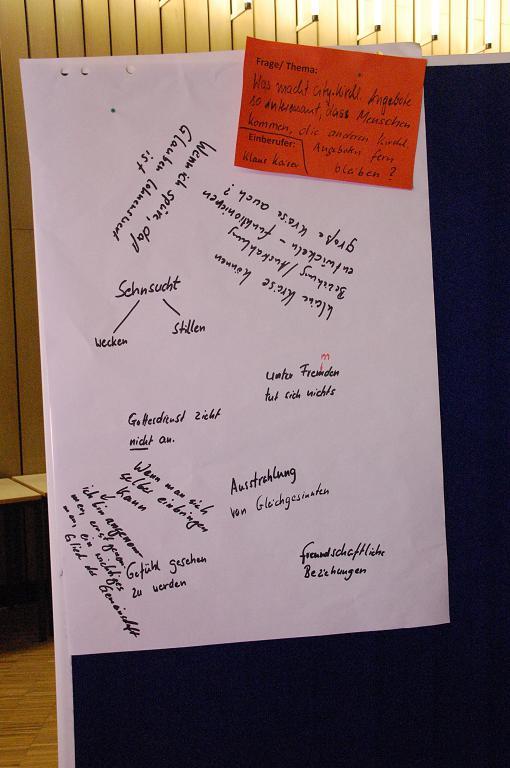 Frage/ Thema:
Was macht city-kirchl. Angebote
so interessant, dass Menschen
kommen, die anderen kirchl.
Einberufer: Angeboten fern
Klaus Kaiser bleiben ?
Wenn ich spüre, daß
Glauben lohnenswert
ist
kleine Kreise können
Beziehung/Ausstrahlung
entwickeln - funktionieren
große Kreise auch ?
Sehnsucht
wecken
stillen
m
unter Fremden
tut sich nichts
Gottesdienst zieht
nicht an.
Wenn man sich
selber einbringen
kann
Ausstrahlung
von Gleichgesinnten
ich bin angenom-
men, ernst genom-
men, ein wichtiges
Glied der Gemeinschaft
Gefühl gesehen
zu werden
freundschaftliche
Beziehungen